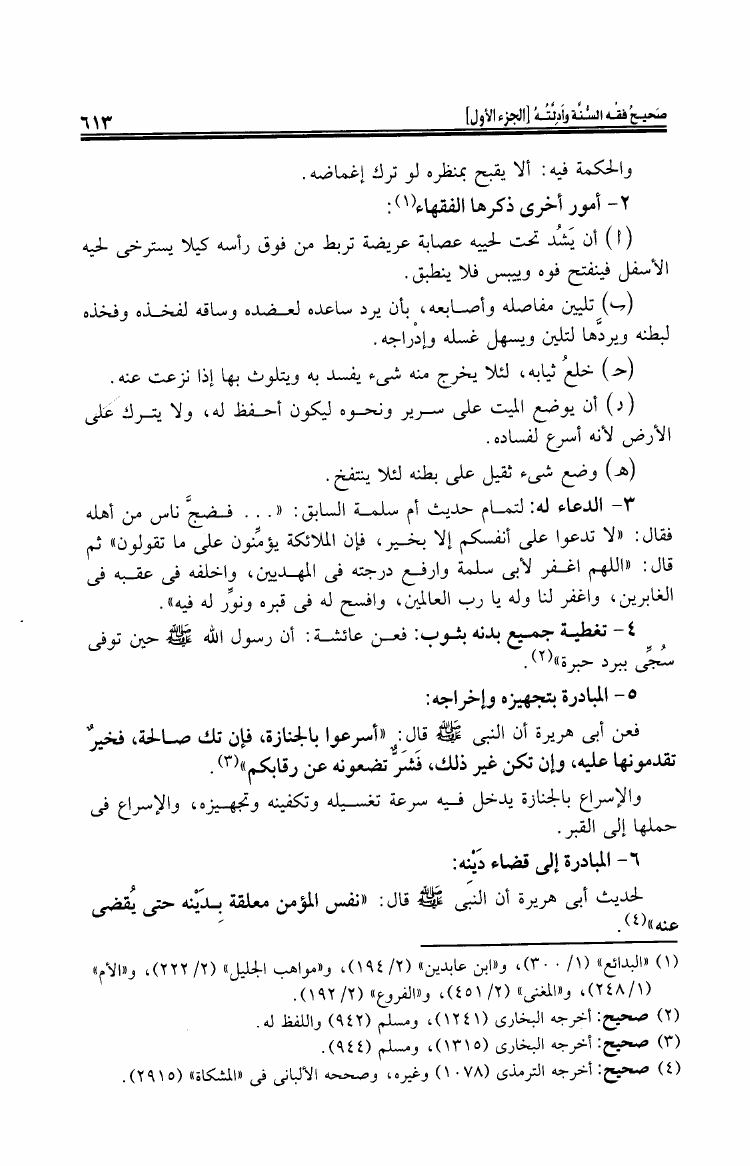 صَحيحُ فقه السُّنَّة وأَدِلَّتُهُ [الجزء الأول] ٦١٣
والحكمة فيه: ألا يقبح بمنظره لو ترك إغماضه.
٢- أمور أخرى ذكرها الفقهاء(١):
(أ) أن يَشُد تحت لحييه عصابة عريضة تربط من فوق رأسه كيلا يسترخى لحيه
الأسفل فينفتح فوه وييبس فلا ينطبق.
(ب) تليين مفاصله وأصابعه، بأن يرد ساعده لعضده وساقه لفخذه وفخذه
لبطنه ويردَّها لتلين ويسهل غسله وإدْراجه.
(حـ) خلعُ ثيابه، لئلا يخرج منه شىء يفسد به ويتلوث بها إذا نزعت عنه.
(د) أن يوضع الميت على سرير ونحوه ليكون أحفظ له، ولا يترك عَلَى
الأرض لأنه أسرع لفساده.
(هـ) وضع شىء ثقيل على بطنه لئلا ينتفخ.
٣- الدعاء له: لتمام حديث أم سلمة السابق: «... فضجَّ ناس من أهله
فقال: «لا تدعوا على أنفسكم إلا بخير، فإن الملائكة يؤمِّنون على ما تقولون» ثم
قال: «اللهم اغفر لأبى سلمة وارفع درجته فى المهديين، واخلفه فى عقبه فى
الغابرين، واغفر لنا وله يا رب العالمين، وافسح له فى قبره ونورِّ له فيه».
٤- تغطية جميع بدنه بثوب: فعن عائشة: أن رسول الله ﷺ حين توفى
سُجِّى ببرد حبرة»(٢).
٥- المبادرة بتجهيزه وإخراجه:
فعن أبى هريرة أن النبى ﷺ قال: «أسرعوا بالجنازة، فإن تك صالحة، فخيرٌ
تقدمونها عليه، وإن تكن غير ذلك، فَشَرٌّ تضعونه عن رقابكم»(٣).
والإسراع بالجنازة يدخل فيه سرعة تغسيله وتكفينه وتجهيزه، والإسراع فى
حملها إلى القبر.
٦- المبادرة إلى قضاء دَيْنِه:
لحديث أبى هريرة أن النبى ﷺ قال: «نفس المؤمن معلقة بِدَيْنه حتى يُقضى
عنه»(٤).
(١) «البدائع» (١/ ٣٠٠)، و«ابن عابدين» (٢/ ١٩٤)، و«مواهب الجليل» (٢/ ٢٢٢)، و«الأم»
(١/ ٢٤٨)، و«المغنى» (٢/ ٤٥١)، و«الفروع» (٢/ ١٩٢).
(٢) صحيح: أخرجه البخارى (١٢٤١)، ومسلم (٩٤٢) واللفظ له.
(٣) صحيح: أخرجه البخارى (١٣١٥)، ومسلم (٩٤٤).
(٤) صحيح: أخرجه الترمذى (١٠٧٨) وغيره، وصححه الألبانى فى «المشكاة» (٢٩١٥).